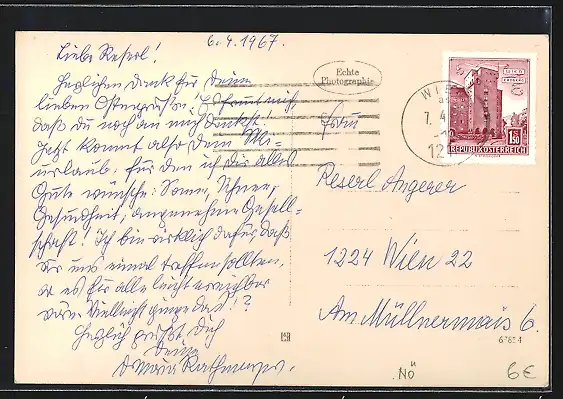 6.4.1967.
Liebe Reserl!
Herzlichen Dank für Deine
lieben Ostergrüße! Es freut mich,
daß du noch an mich denkst!
Jetzt kommt also Dein
urlaub, für den ich Dir alles
Gute wünsche: Sonne, Schnee,
Gesundheit, angenehme Gesell-
schaft! Ich bin wirklich dafür daß
wir uns einmal treffen sollten,
wo es für alle leicht erreichbar
wäre. Vielleicht ginge das!?
Herzlich grüßt Dich
Deine
Maria
Echte
Photographie
WIEN
7. 4
121
WIEN
ERDBERG
1.50
REPUBLIK ÖSTERREICH
Frau
Reserl Angerer
1224 Wien 22
Am Müllnermais 6.
NÖ
6€